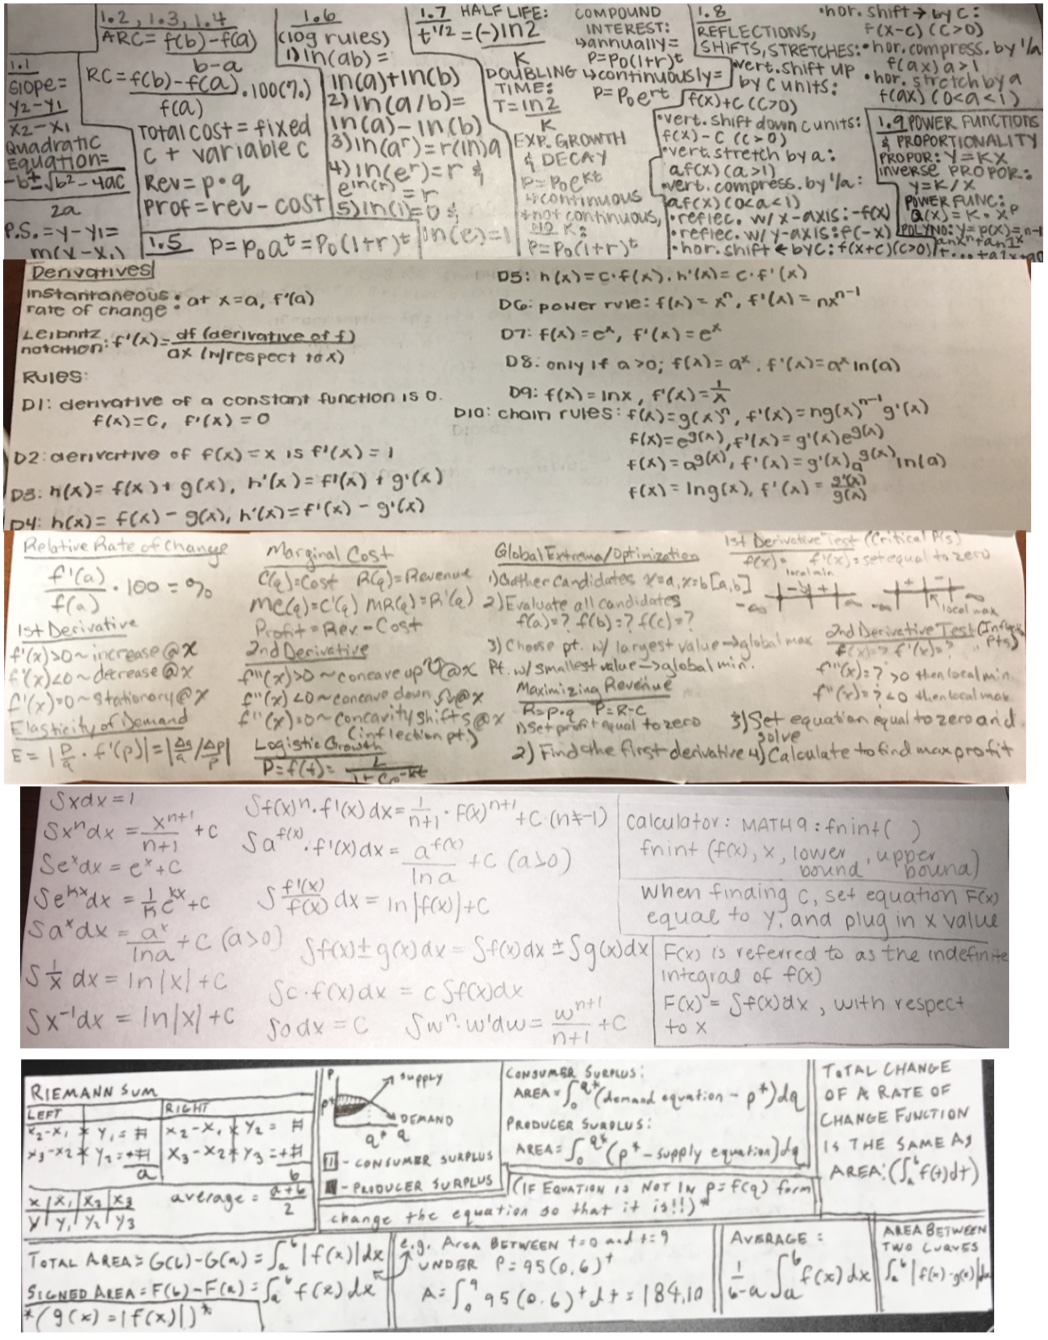 1.1
slope=
y2-y1
x2-x1
Quadratic
Equation=
-b±√b²-4ac
2a
P.S.=y-y1=
m(x-x1)
1.2, 1.3, 1.4
ARC= f(b)-f(a)
b-a
RC=f(b)-f(a) .100(%)
f(a)
Total cost = fixed
c + variable c
Rev = p·q
Prof = rev - cost
1.5 P=P0a^t=P0(1+r)^t
1.6
(log rules)
1) ln(ab)=
ln(a)+ln(b)
2) ln(a/b)=
ln(a)-ln(b)
3) ln(a^r)=r(ln)a
4) ln(e^r)=r &
e^ln(r)=r
5) ln(1)=0 &
ln(e)=1
1.7 HALF LIFE:
t^1/2 = (-)ln2
K
DOUBLING
TIME:
T=ln2
K
EXP. GROWTH
& DECAY
P=P0e^kt
↳continuous
*not continuous,
NO K:
P=P0(1+r)^t
COMPOUND
INTEREST:
↳annually=
P=P0(1+r)^t
↳continuously=
P=P0e^rt
1.8
REFLECTIONS,
SHIFTS, STRETCHES:
•vert. shift up
by c units:
f(x)+c (c>0)
•vert. shift down c units:
f(x)-c (c>0)
•vert. stretch by a:
af(x) (a>1)
•vert. compress. by 1/a:
af(x) (0<a<1)
•reflec. w/ x-axis: -f(x)
•reflec. w/ y-axis: f(-x)
•hor. shift ← by c: f(x+c)(c>0)
•hor. shift → by c:
f(x-c) (c>0)
•hor. compress. by 1/a
f(ax) a>1
•hor. stretch by a
f(ax) (0<a<1)
1.9 POWER FUNCTIONS
& PROPORTIONALITY
PROPOR: y=kx
INVERSE PROPOR.:
y=k/x
POWER FUNC:
Q(x)=k·x^p
POLYNO: y=p(x)=
Derivatives
instantaneous : at x=a, f'(a)
rate of change
Leibnitz
notation: f'(x)= df (derivative of f)
dx (w/respect to x)
Rules:
D1: derivative of a constant function is 0.
f(x)=c, f'(x)=0
D2: derivative of f(x)=x is f'(x)=1
D3: h(x)=f(x)+g(x), h'(x)=f'(x)+g'(x)
D4: h(x)=f(x)-g(x), h'(x)=f'(x)-g'(x)
D5: h(x)=c·f(x), h'(x)=c·f'(x)
D6: power rule: f(x)=x^n, f'(x)=nx^n-1
D7: f(x)=e^x, f'(x)=e^x
D8: only if a>0; f(x)=a^x, f'(x)=a^x ln(a)
D9: f(x)=lnx, f'(x)=1/x
D10: chain rules: f(x)=g(x)^n, f'(x)=ng(x)^n-1 g'(x)
f(x)=e^g(x), f'(x)=g'(x)e^g(x)
f(x)=a^g(x), f'(x)=g'(x)a^g(x) ln(a)
f(x)=lng(x), f'(x)= g'(x)
g(x)
Relative Rate of Change
f'(a) ·100=%
f(a)
1st Derivative
f'(x)>0~increase@x
f'(x)<0~decrease@x
f'(x)=0~stationary@x
Elasticity of Demand
E=|p/q · f'(p)|=|Δq/q / Δp/p|
Marginal Cost
C(q)=Cost R(q)=Revenue
MC(q)=C'(q) MR(q)=R'(q)
Profit=Rev-Cost
2nd Derivative
f''(x)>0~concave up @x
f''(x)<0~concave down @x
f''(x)=0~concavity shifts@x
(inflection pt)
Logistic Growth
P=f(t)= L
1+Ce^-kt
Global Extrema/Optimization
1) Gather candidates x=a, x=b [a,b]
2) Evaluate all candidates
f(a)=? f(b)=? f(c)=?
3) Choose pt. w/ largest value→global max
Pt. w/smallest value→global min.
Maximizing Revenue
R=p·q P=R-C
1) Set profit equal to zero
2) Find the first derivative
3) Set equation equal to zero and
solve
4) Calculate to find max profit
1st Derivative Test (Critical Pts)
f(x)= f'(x)=set equal to zero
local min
local max
2nd Derivative Test
f(x)=? f'(x)=?
f''(x)=? >0 then local min.
f''(x)=? <0 then local max.
∫xdx=1
∫x^n dx = x^n+1 +C
n+1
∫e^x dx = e^x+C
∫e^kx dx = 1/k e^kx+C
∫a^x dx = a^x +C (a>0)
lna
∫1/x dx = ln|x|+C
∫x^-1 dx = ln|x|+C
∫f(x)^n·f'(x)dx= 1 · F(x)^n+1 +C (n≠-1)
n+1
∫a^f(x)·f'(x)dx= a^f(x) +C (a>0)
lna
∫f'(x) dx = ln|f(x)|+C
f(x)
∫f(x)±g(x)dx = ∫f(x)dx ± ∫g(x)dx
∫c·f(x)dx = c∫f(x)dx
∫0 dx = C
∫w^n·w'dw= w^n+1 +C
n+1
calculator: MATH 9: fnint( )
fnint (f(x), x, lower , upper
bound bound)
When finding C, set equation F(x)
equal to y, and plug in x value
F(x) is referred to as the indefinite
integral of f(x)
F(x)=∫f(x)dx, with respect
to x
RIEMANN SUM
LEFT RIGHT
x2-x1 * y1 = # x2-x1 * y2 = #
x3-x2 * y2 = +# x3-x2 * y3 = +#
a b
x x1 x2 x3
y y1 y2 y3
average = a+b
2
P
P*
SUPPLY
DEMAND
q* q
- CONSUMER SURPLUS
- PRODUCER SURPLUS
CONSUMER SURPLUS:
AREA=∫0^q* (demand equation - p*)dq
PRODUCER SURPLUS:
AREA=∫0^q* (p* - supply equation)dq
(IF EQUATION IS NOT IN p=f(q) form
change the equation so that it is!!)*
TOTAL CHANGE
OF A RATE OF
CHANGE FUNCTION
IS THE SAME AS
AREA: (∫a^b f(t)dt)
TOTAL AREA = G(b)-G(a) = ∫a^b |f(x)|dx
SIGNED AREA = F(b)-F(a) = ∫a^b f(x) dx
*(g(x)=|f(x)|)*
e.g. AREA BETWEEN t=0 and t=9
UNDER P=95(0.6)^t
A=∫0^9 95(0.6)^t dt = 184.10
AVERAGE:
1 ∫a^b f(x) dx
b-a
AREA BETWEEN
TWO CURVES
∫a^b |f(x)-g(x)|dx